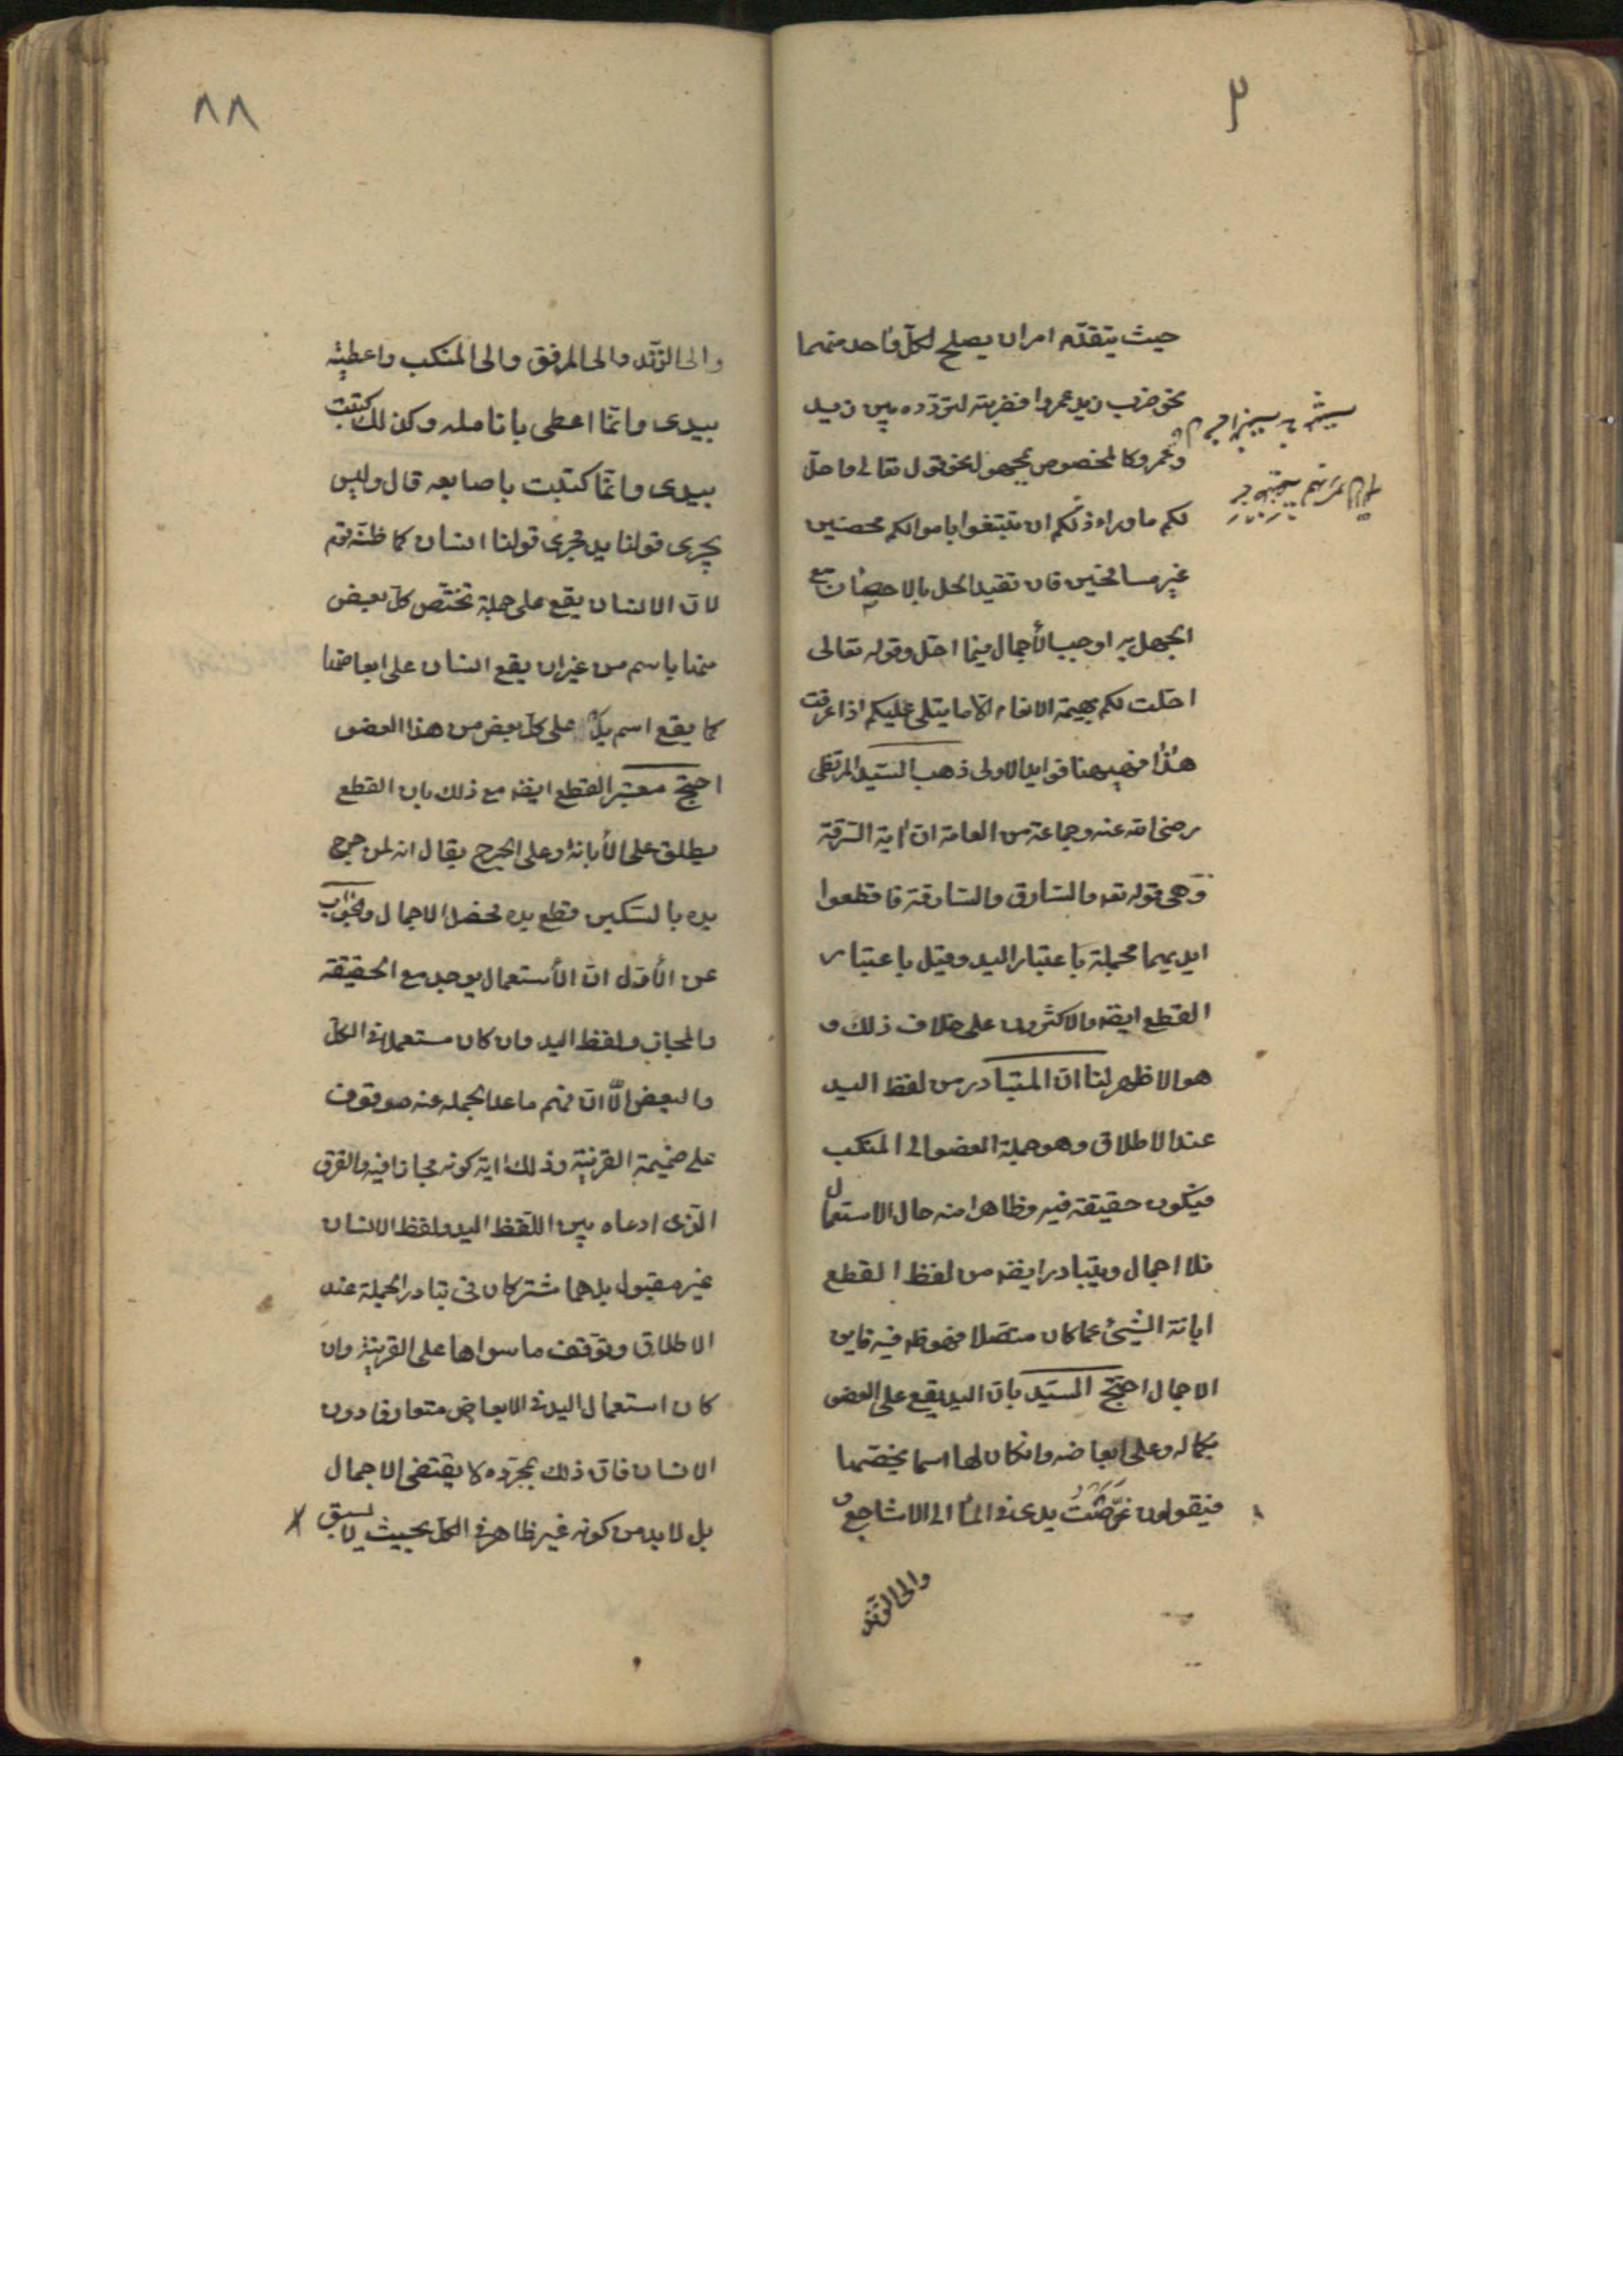 حيث يتقدّم امران يصلح لكلّ واحد منهما
نحو ضرب زيد عمروا فضربته لتردّده بين زيد
وعمرو وكالمخصوص بمجهول نحو قوله تعالى واحلّ
لكم ماوراء ذلكم ان تبتغوا باموالكم محصنين
غير مسافحين فان تقييد الحل بالاحصان مع
الجهل به اوجب الأجمال فيما احل وقوله تعالى
احلت لكم بهيمة الانعام الّا ما يتلى عليكم اذا عرفت
هذا فههنا فوايد الاولى ذهب السيّد المرتضى
رضى الله عنه وجماعة من العامة ان اية السّرقة
وهى قوله تعه والسّارق والسّارقة فاقطعوا
ايديهما مجملة باعتبار اليد وقيل باعتبار
القطع ايضه والاكثرون على خلاف ذلك و
هو الاظهر لنا انّ المتبادر من لفظ اليد
عند الاطلاق وهو جملة العضو الى المنكب
فيكون حقيقة فيه وظاهرا منه حال الاستعمال
فلا اجمال ويتبادر ايضه من لفظ القطع
ابانة الشيئ عما كان متصلا فهو ظه فيه فاين
الاجمال احتجّ السيّد بانّ اليد يقع على العضو
بكماله وعلى ابعاضه وانكان لها اسما يخصّها
فيقولون غوّصتُ يدى فى الماء الى الاشاجع و
والى الزّند
٨٨
والى الزّند والى المرفق والى المنكب واعطيته
بيدى وانّما اعطى بانامله وكذلك كتبت
بيدى وانّما كتبت باصابعه قال وليس
يجرى قولنا يد مجرى قولنا انسان كما ظنّه قوم
لانّ الانسان يقع على جملة تختّص كلّ بعض
منها باسم من غير ان يقع انسان على ابعاضها
كما يقع اسم يد على كلّ بعض من هذا العضو
احتجّ معتبر القطع ايضه مع ذلك بان القطع
يطلق على الأبانة وعلى الجرح يقال انه لمن جرح
يده بالسّكين قطع يده فحصل الاجمال والجواب
عن الأوّل انّ الأستعمال يوجد مع الحقيقة
والمجاز ولفظ اليد وان كان مستعملا فى الكلّ
والبعض الّا انّ فهم ماعدا الجمله عنه موقوف
على ضميمة القرنية وذلك اية كونه مجازا فيه والفرق
الّذى ادعاه بين اللّفظ اليد ولفظ الانسان
غير مقبول بل هما مشتركان فى تبادر الجملة عند
الاطلاق وتوّقف ما سواها على القرنية وان
كان استعمال اليد فى الابعاض متعارفا دون
الانسان فانّ ذلك بمجرّده لا يقتضى الاجمال
بل لابد من كونه غير ظاهر فى الكلّ بحيث لا يسبق